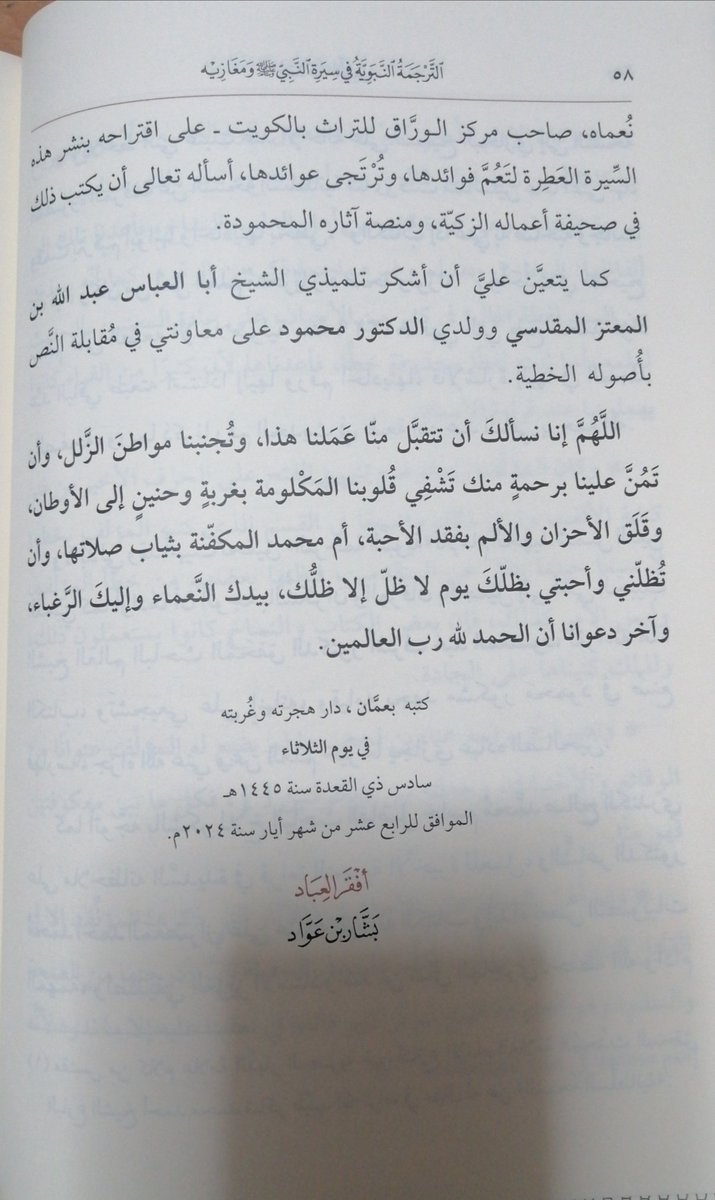 ٥٨
التَّرجَمَةُ النَّبَوِيَّةُ فِي سِيرَةِ النَّبِيِّ ﷺ وَمَغَازِيْه
نُعماه، صاحب مركز الورَّاق للتراث بالكويت ـ على اقتراحه بنشر هذه
السِّيرة العَطِرة لتَعُمَّ فوائدها، وتُرْتَجى عوائدها، أسأله تعالى أن يكتب ذلك
في صحيفة أعماله الزكيّة، ومنصة آثاره المحمودة.
كما يتعيَّن عليَّ أن أشكر تلميذي الشيخ أبا العباس عبد الله بن
المعتز المقدسي وولدي الدكتور محمود على معاونتي في مُقابلة النَّص
بأُصوله الخطية.
اللَّهُمَّ إنا نسألكَ أن تتقبَّل منّا عَمَلنا هذا، وتُجنبنا مواطنَ الزَّلل، وأن
تَمُنَّ علينا برحمةٍ منك تَشْفِي قُلوبنا المَكْلومة بغربةٍ وحنينٍ إلى الأوطان،
وقَلَق الأحزان والألم بفقد الأحبة، أم محمد المكفّنة بثياب صلاتها، وأن
تُظلّني وأحبتي بظلّكَ يوم لا ظلّ إلا ظلُّك، بيدك النَّعماء وإليكَ الرَّغباء،
وآخر دعوانا أن الحمد لله رب العالمين.
كتبه بعمَّان، دار هجرته وغُربته
في يوم الثلاثاء
سادس ذي القعدة سنة ١٤٤٥هـ
الموافق للرابع عشر من شهر أيار سنة ٢٠٢٤م.
أَفْقَر العِبَاد
بَشَّار بْن عَوَّاد